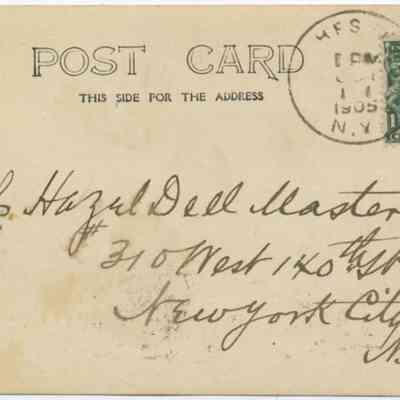 POST CARD
THIS SIDE FOR THE ADDRESS
1905
N.Y.
Hazel Dell Master
310 West 140th St
New York City
N.
1